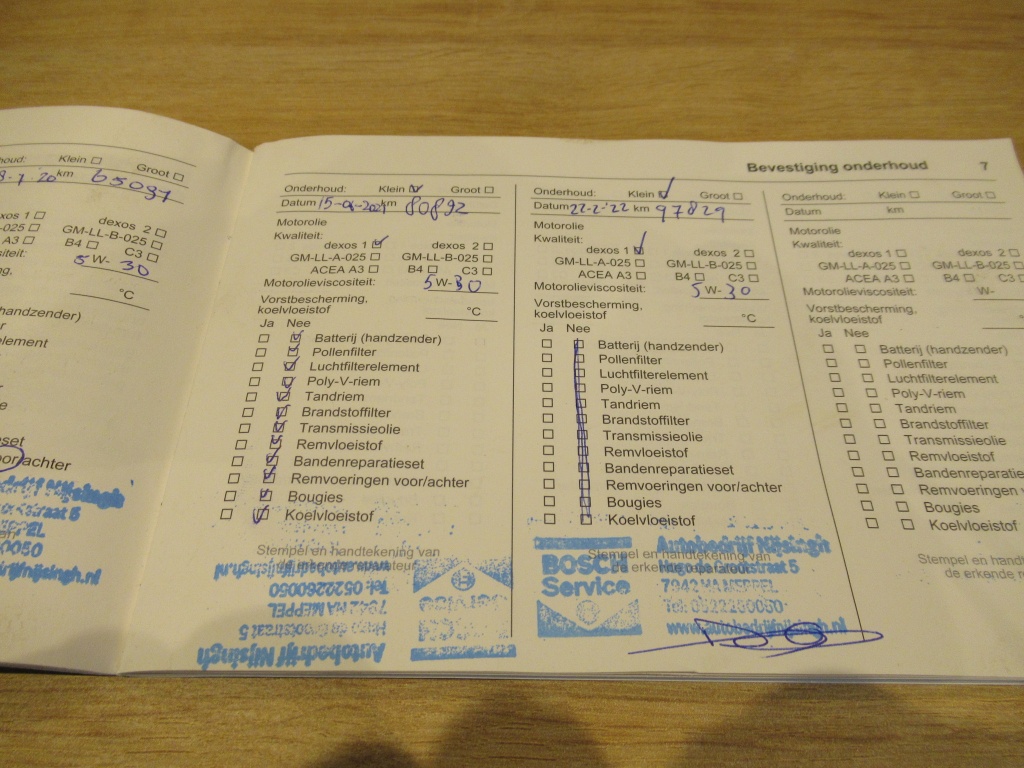 Bevestiging onderhoud 7
Klein Groot
km 65097
dexos 2
GM-LL-B-025
A3 B4 C3
5 W- 30
°C
handzender)
voor/achter
Onderhoud: Klein Groot
Datum 15-04-2021 km 80892
Motorolie
Kwaliteit:
dexos 1 dexos 2
GM-LL-A-025 GM-LL-B-025
ACEA A3 B4 C3
Motorolieviscositeit: 5 W- 30
Vorstbescherming,
koelvloeistof °C
Ja Nee
Batterij (handzender)
Pollenfilter
Luchtfilterelement
Poly-V-riem
Tandriem
Brandstoffilter
Transmissieolie
Remvloeistof
Bandenreparatieset
Remvoeringen voor/achter
Bougies
Koelvloeistof
Stempel en handtekening van
de erkende reparateur
Autobedrijf Nijsingh
Hugo de Grootstraat 5
7942 HA MEPPEL
Tel: 0522260050
www.autobedrijfnijsingh.nl
BOSCH
Service
Onderhoud: Klein Groot
Datum 22-2-'22 km 97829
Motorolie
Kwaliteit:
dexos 1 dexos 2
GM-LL-A-025 GM-LL-B-025
ACEA A3 B4 C3
Motorolieviscositeit: 5 W- 30
Vorstbescherming,
koelvloeistof °C
Ja Nee
Batterij (handzender)
Pollenfilter
Luchtfilterelement
Poly-V-riem
Tandriem
Brandstoffilter
Transmissieolie
Remvloeistof
Bandenreparatieset
Remvoeringen voor/achter
Bougies
Koelvloeistof
Stempel en handtekening van
de erkende reparateur
BOSCH
Service
Autobedrijf Nijsingh
Hugo de Grootstraat 5
7942 HA MEPPEL
Tel: 0522260050
www.autobedrijfnijsingh.nl
Onderhoud: Klein Groot
Datum km
Motorolie
Kwaliteit:
dexos 1 dexos 2
GM-LL-A-025 GM-LL-B-025
ACEA A3 B4 C3
Motorolieviscositeit: W-
Vorstbescherming,
koelvloeistof °C
Ja Nee
Batterij (handzender)
Pollenfilter
Luchtfilterelement
Poly-V-riem
Tandriem
Brandstoffilter
Transmissieolie
Remvloeistof
Bandenreparatie
Remvoeringen
Bougies
Koelvloeistof
Stempel en
de erkende